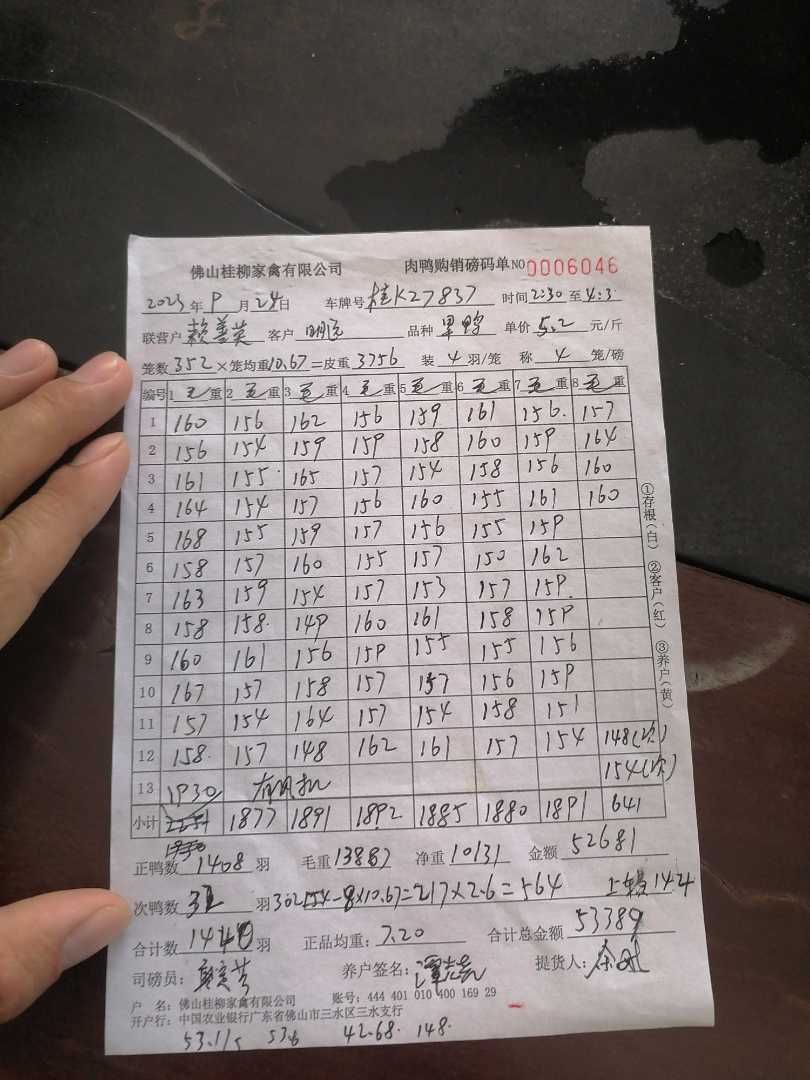 佛山桂柳家禽有限公司 肉鸭购销磅码单NO0006046
2023年9月24日 车牌号桂K27837 时间2:30至4:3
联营户赖善英 客户 品种 单价5.2元/斤
笼数352×笼均重10.67=皮重3756 装4羽/笼 称4笼/磅
编号 1毛重 2毛重 3毛重 4毛重 5毛重 6毛重 7毛重 8毛重
1 160 156 162 156 159 161 156. 157
2 156 154 159 159 158 160 159 164
3 161 155 165 157 154 158 156 160
4 164 154 157 156 160 155 161 160
5 168 155 159 157 156 155 159
6 158 157 160 155 157 150 162
7 163 159 154 157 153 157 159
8 158 158 149 160 161 158 159
9 160 161 156 159 155 155 156
10 167 157 158 157 157 156 159
11 157 154 164 157 154 158 151
12 158 157 148 162 161 157 154 148(次)
13 1930 154(次)
小计 1877 1891 1892 1885 1880 1891 641
正鸭数1408羽 毛重13887 净重10131 金额52681
次鸭数32羽302-8×10.67=217×2.6=564 142
合计数1440羽 正品均重:7.20 合计总金额53389
司磅员: 养户签名: 提货人:
户 名:佛山桂柳家禽有限公司 账号:444 401 010 400 169 29
开户行:中国农业银行广东省佛山市三水区三水支行
53.6 42.68. 148.
①存根(白) ②客户(红) ③养户(黄)